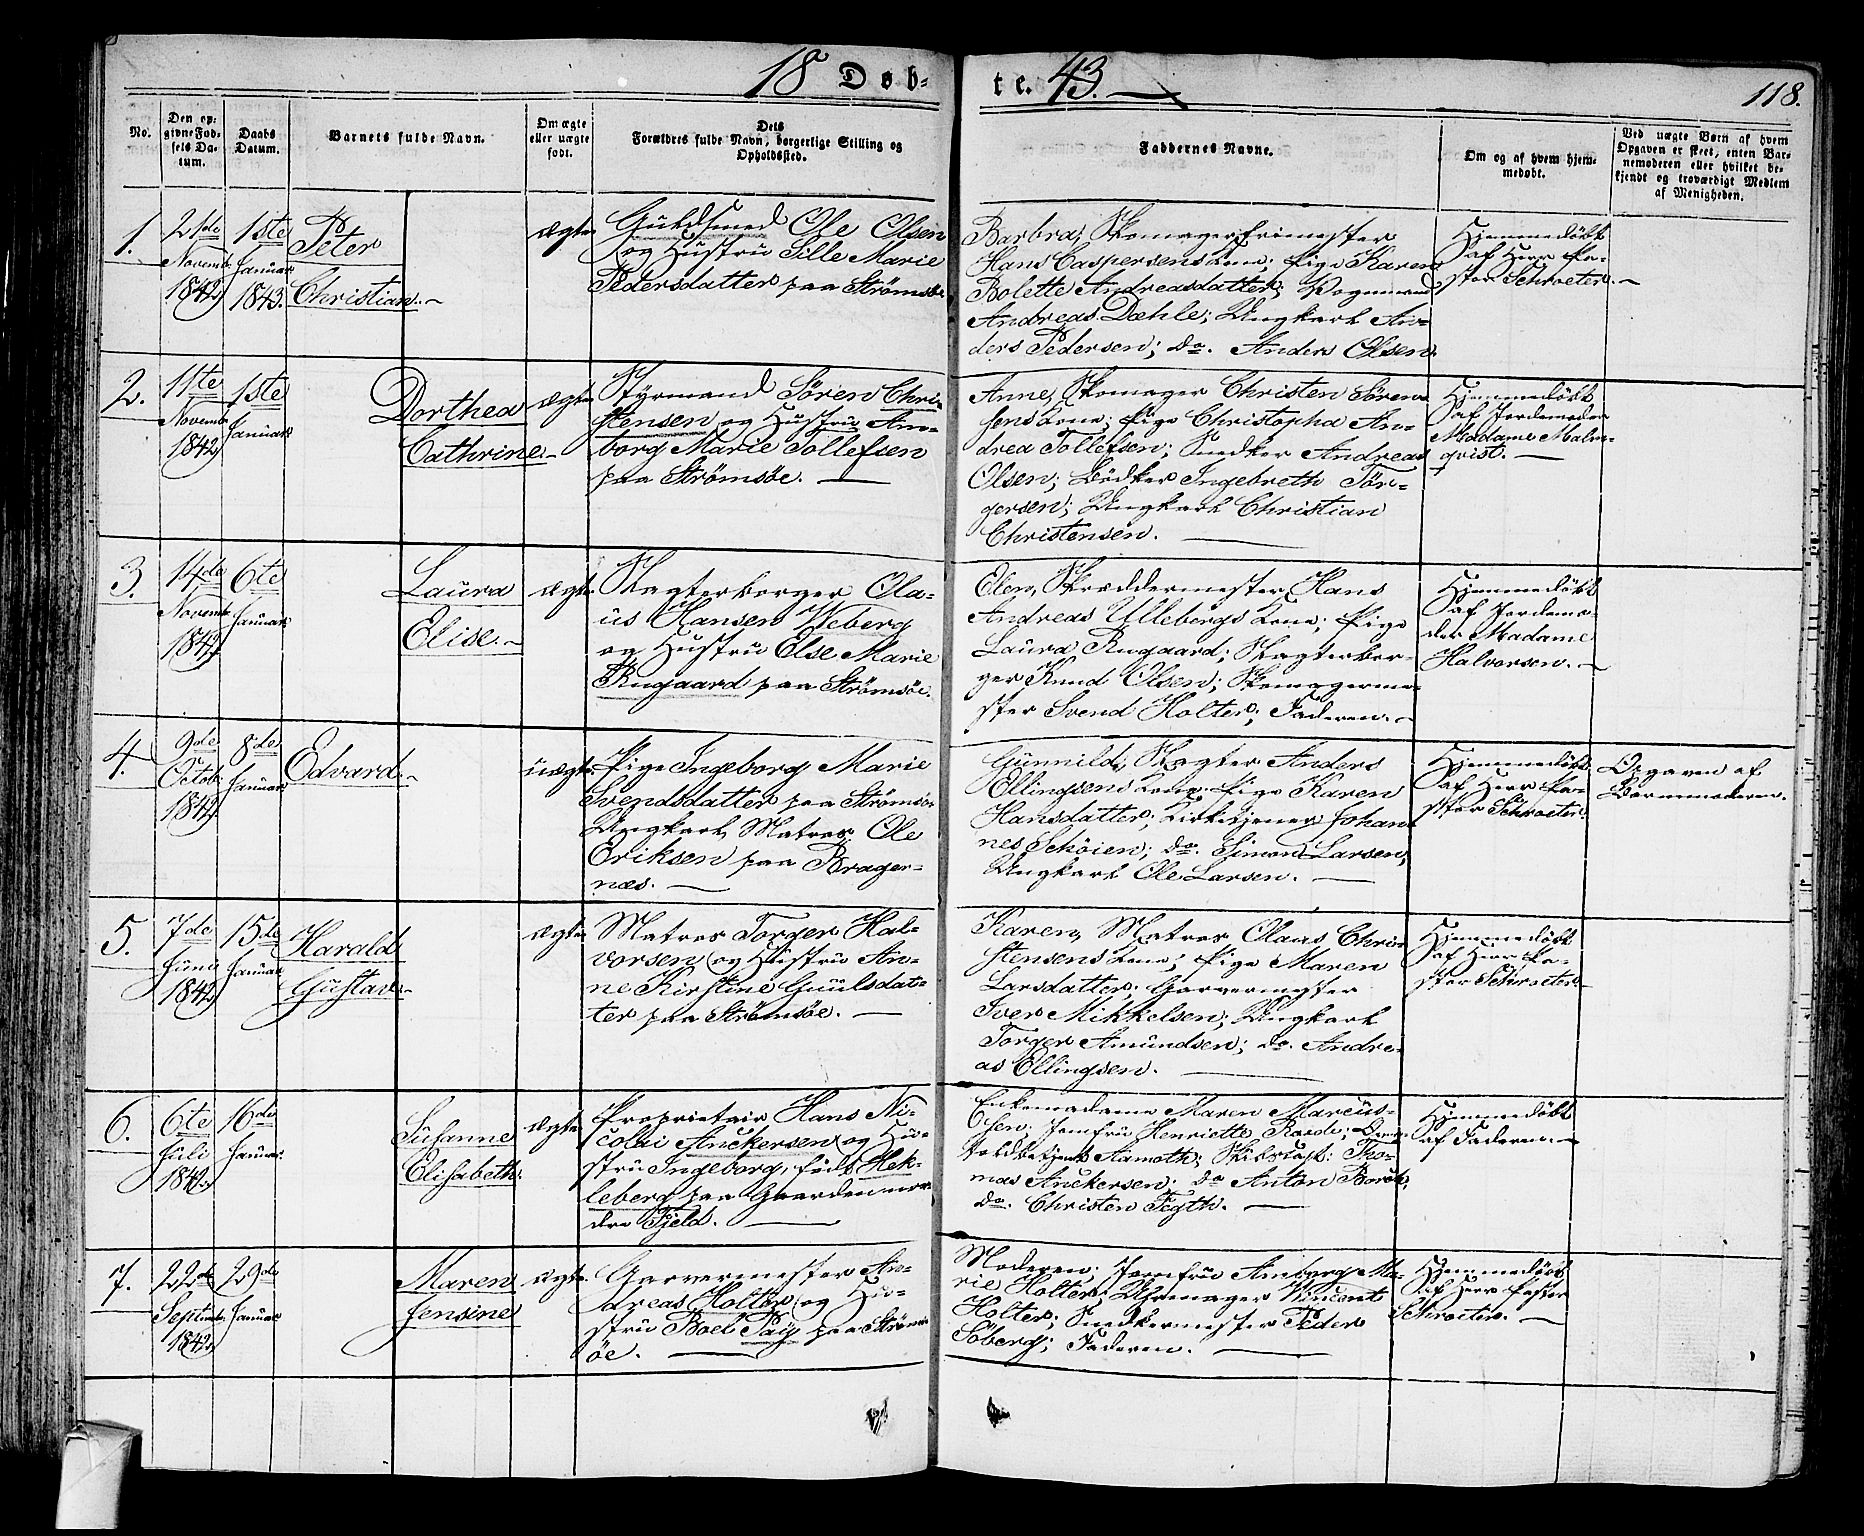 18 Døb-
te. 43.
118.
No.
Den op-
givne Fød-
sels Da-
tum.
Daabs
Datum.
Barnets fulde Navn.
Om ægte
eller uægte
født.
Dets
Forældres fulde Navn, borgerlige Stilling og
Opholdssted.
Faddernes Navne.
Om og af hvem hjem-
medøbt.
Ved uægte Børn af hvem
Opgaven er skeet, enten Bar-
nemoderen eller hvilket be-
kjendt og troværdigt Medlem
af Menigheden.
1.
21de
Novemb.
1842
1ste
Januar
1843.
Peter
Christian.
ægte
Guldsmed Ole Olsen
og Hustru Sille Marie
Pedersdatter paa Strømsöe
Barbra, Skomagerfrimester
Hans Caspersens Kone; Pige Karen
Bolette Andreasdatter; Vognmand
Andreas Dæhle; Ungkarl An-
ders Pedersen; do. Anders Olsen
Hjemmedöbt
af Herr Pa-
stor Schroeter.
2.
11te
Novemb.
1842
1ste
Januar
Dorthea
Cathrine
ægte
Styrmand Sören Chri-
stensen og Hustru An-
borg Marie Tollefsen
paa Strömsöe.
Anne, Skomager Christen Sören-
sens Kone; Pige Christopha An-
drea Tollefsen; Snedker Andreas
Olsen; Bödker Ingebreth Tör-
gersen; Ungkarl Christian
Christensen.
Hjemmedöbt
af Jordemoder
Madame Malm-
qvist.
3.
14de
Novemb.
1842
6te
Januar
Laura
Elise.
ægte
Slagterborger Ola-
us Hansen Weberg
og Hustru Else Marie
Knugaard paa Strömsöe.
Elen, Skræddermester Hans
Andreas Ullebergs Kone; Pige
Laura Knugaard; Slagterbor-
ger Knud Olsen; Skomagerme-
ster Svend Holter; Faderen.
Hjemmedöbt
af Jordemo-
der Madame
Halvorsen.
4.
9de
Octob.
1842
8de
Januar
Edvard.
uægte
Pige Ingeborg Marie
Svendsdatter paa Strömsöe
Ungkarl, Matros Ole
Eriksen paa Brager-
næs.
Gunnild, Slagter Anders
Ellingsens Kone; Pige Karen
Hansdatter; Kirketjener Johan-
nes Schöien; do. Simon Larsen;
Ungkarl Ole Larsen.
Hjemmedöbt
af Herr Pa-
stor Schroeter.
Opgaven af
Barnemoderen.
5.
7de
Juni
1842
15de
Januar
Harald
Gustav.
ægte
Matros Torger Hal-
vorsen og Hustru An-
ne Kirstine Guulsdat-
ter paa Strömsöe.
Karen, Matros Olaus Chri-
stensens Kone; Pige Maren
Larsdatter; Garvermester
Iver Mikkelsen; Ungkarl
Torger Amundsen; do. Andre-
as Ellingsen.
Hjemmedöbt
af Herr Pa-
stor Schroeter.
6.
6te
Juli
1842.
16de
Januar.
Susanne
Elisabeth.
ægte
Proprietair Hans Ni-
colai Anckersen og Hu-
stru Ingeborg, född Hek-
leberg paa Gaarden nor-
dre Fjeld.
Enkemadame Maren Marcus-
sen; Jomfru Henriette Rasde;
Toldbetjent Aamoth; Skibscapt: Tho-
mas Anckersen; do Anton Borch;
do. Christen Fegth.
Hjemmedöbt
af Faderen.
7.
22de
Septemb.
1842
29de
Januar
Maren
Jensine
ægte
Garvermester An-
dreas Holter og Hu-
stru Boel Pay paa Ströms-
öe.
Moderen; Jomfru Anborg Ma-
rie Holter; Uhrmager Vincent
Holter; Snedkermester Peder
Söberg; Faderen.
Hjemmedöbt
af Herr Pastor
Schroeter.